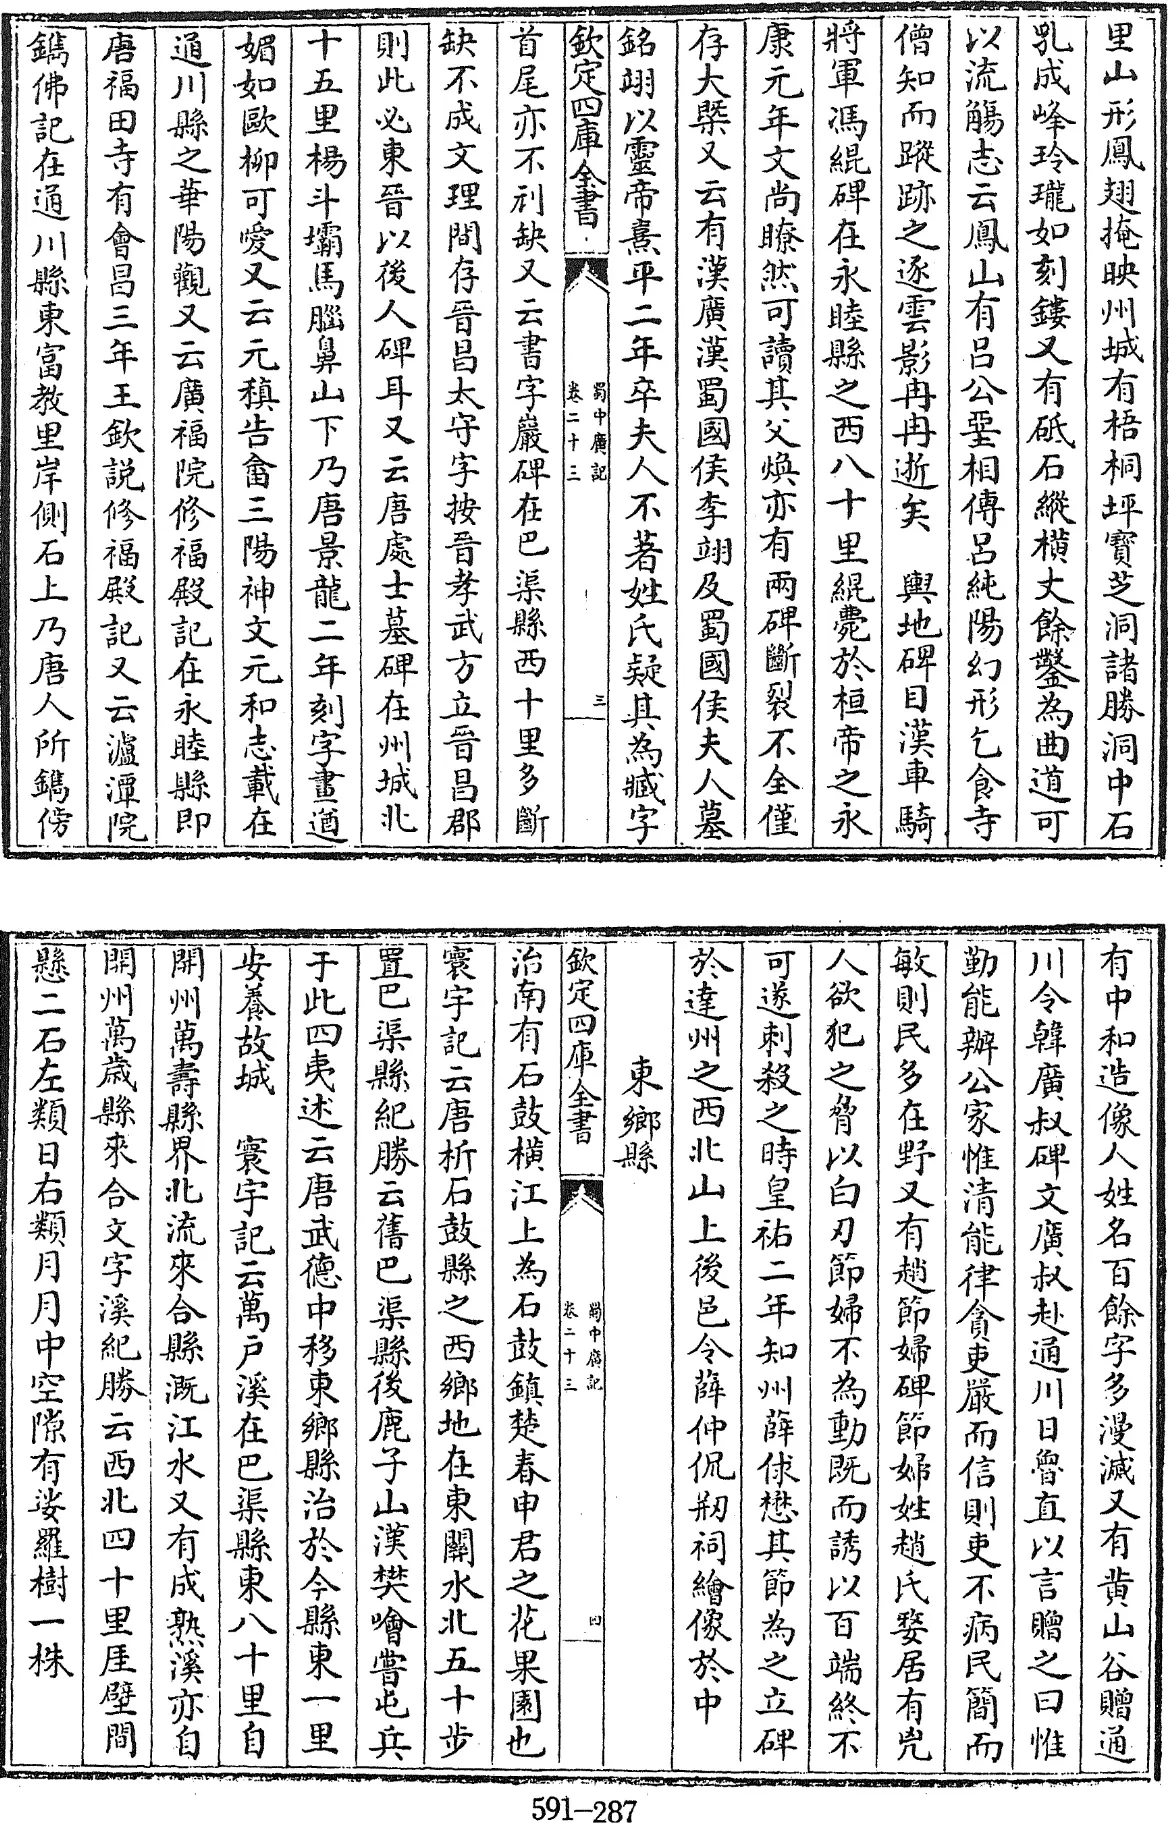 里山形鳳翅掩映州城有梧桐坪寶芝洞諸勝洞中石
乳成峰玲瓏如刻鏤又有砥石縱橫丈餘鑿為曲道可
以流觴志云鳳山有呂公堊相傳呂純陽幻形乞食寺
僧知而蹤跡之逐雲影冉冉逝矣　輿地碑目漢車騎
將軍馮緄碑在永睦縣之西八十里緄薨於桓帝之永
康元年文尚瞭然可讀其父煥亦有兩碑斷裂不全僅
存大槩又云有漢廣漢蜀國侯李翊及蜀國侯夫人墓
銘翊以靈帝熹平二年卒夫人不著姓氏疑其為臧字
欽定四庫全書
蜀中廣記
卷二十三
三
首尾亦不刓缺又云書字巖碑在巴渠縣西十里多斷
缺不成文理間存晉昌太守字按晉孝武方立晉昌郡
則此必東晉以後人碑耳又云唐處士墓碑在州城北
十五里楊斗壩馬腦鼻山下乃唐景龍二年刻字畫遒
媚如歐柳可愛又云元稹告畬三陽神文元和志載在
通川縣之華陽觀又云廣福院修福殿記在永睦縣即
唐福田寺有會昌三年王欽說修福殿記又云瀘潭院
鐫佛記在通川縣東富教里岸側石上乃唐人所鐫傍
有中和造像人姓名百餘字多漫滅又有黃山谷贈通
川令韓廣叔碑文廣叔赴通川日魯直以言贈之曰惟
勤能辦公家惟清能律貪吏嚴而信則吏不病民簡而
敏則民多在野又有趙節婦碑節婦姓趙氏嫠居有兇
人欲犯之脅以白刃節婦不為動既而誘以百端終不
可遂刺殺之時皇祐二年知州薛俅懋其節為之立碑
於達州之西北山上後邑令薛仲侃剏祠繪像於中
東鄉縣
欽定四庫全書
蜀中廣記
卷二十三
四
治南有石鼓橫江上為石鼓鎮楚春申君之花果園也
寰宇記云唐析石鼓縣之西鄉地在東關水北五十步
置巴渠縣紀勝云舊巴渠縣後鹿子山漢樊噲嘗屯兵
于此四夷述云唐武德中移東鄉縣治於今縣東一里
安養故城　寰宇記云萬戶溪在巴渠縣東八十里自
開州萬壽縣界北流來合縣溉江水又有成熟溪亦自
開州萬歲縣來合文字溪紀勝云西北四十里厓壁間
懸二石左類日右類月月中空隙有娑羅樹一株
591-287